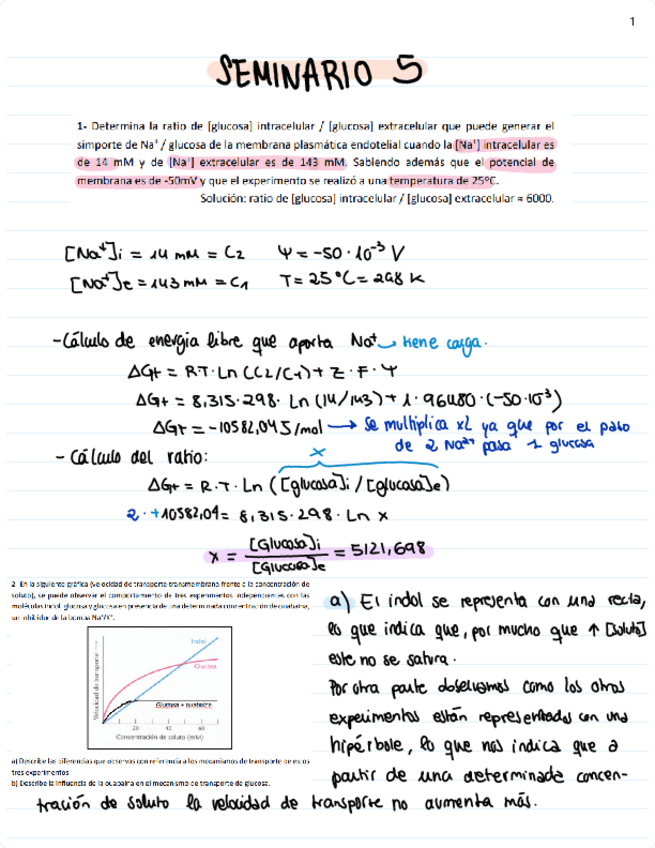 1
SEMINARIO 5
1- Determina la ratio de [glucosa] intracelular / [glucosa] extracelular que puede generar el
simporte de Na⁺ / glucosa de la membrana plasmática endotelial cuando la [Na⁺] intracelular es
de 14 mM y de [Na⁺] extracelular es de 143 mM. Sabiendo además que el potencial de
membrana es de -50mV y que el experimento se realizó a una temperatura de 25ºC.
Solución: ratio de [glucosa] intracelular / [glucosa] extracelular ≈ 6000.
[Na⁺]i = 14 mM = C2 Ψ = -50·10⁻³ V
[Na⁺]e = 143 mM = C1 T = 25°C = 298 K
- Cálculo de energía libre que aporta Na⁺ → tiene carga.
ΔGt = R·T·Ln (C2/C1) + Z·F·Ψ
ΔGt = 8,315·298·Ln (14/143) + 1·96480·(-50·10⁻³)
ΔGt = -10582,04 J/mol → Se multiplica x2 ya que por el paso
de 2 Na²⁺ pasa 1 glucosa
- Cálculo del ratio: x
ΔGt = R·T·Ln ([glucosa]i / [glucosa]e)
2·+10582,04 = 8,315·298·Ln x
x = [Glucosa]i / [Glucosa]e = 5121,698
2. En la siguiente gráfica (velocidad de transporte transmembrana frente a la concentración de
soluto), se puede observar el comportamiento de tres experimentos independientes con las
moléculas indol, glucosa y glucosa en presencia de una determinada concentración de ouabaína,
un inhibidor de la bomba Na⁺/K⁺.
Velocidad de transporte
Indol
Glucosa
Glucosa + ouabaína
20 40 60
Concentración de soluto (mM)
a) Describe las diferencias que observas con referencia a los mecanismos de transporte de estos
tres experimentos
b) Describe la influencia de la ouabaína en el mecanismo de transporte de glucosa.
a) El indol se representa con una recta,
lo que indica que, por mucho que ↑ [soluto]
este no se satura.
Por otra parte observamos como los otros
experimentos están representados con una
hipérbole, lo que nos indica que a
partir de una determinada concen-
tración de soluto la velocidad de transporte no aumenta más.